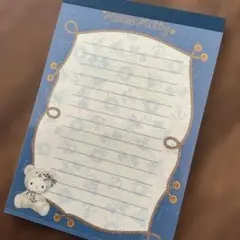 Hello Kitty